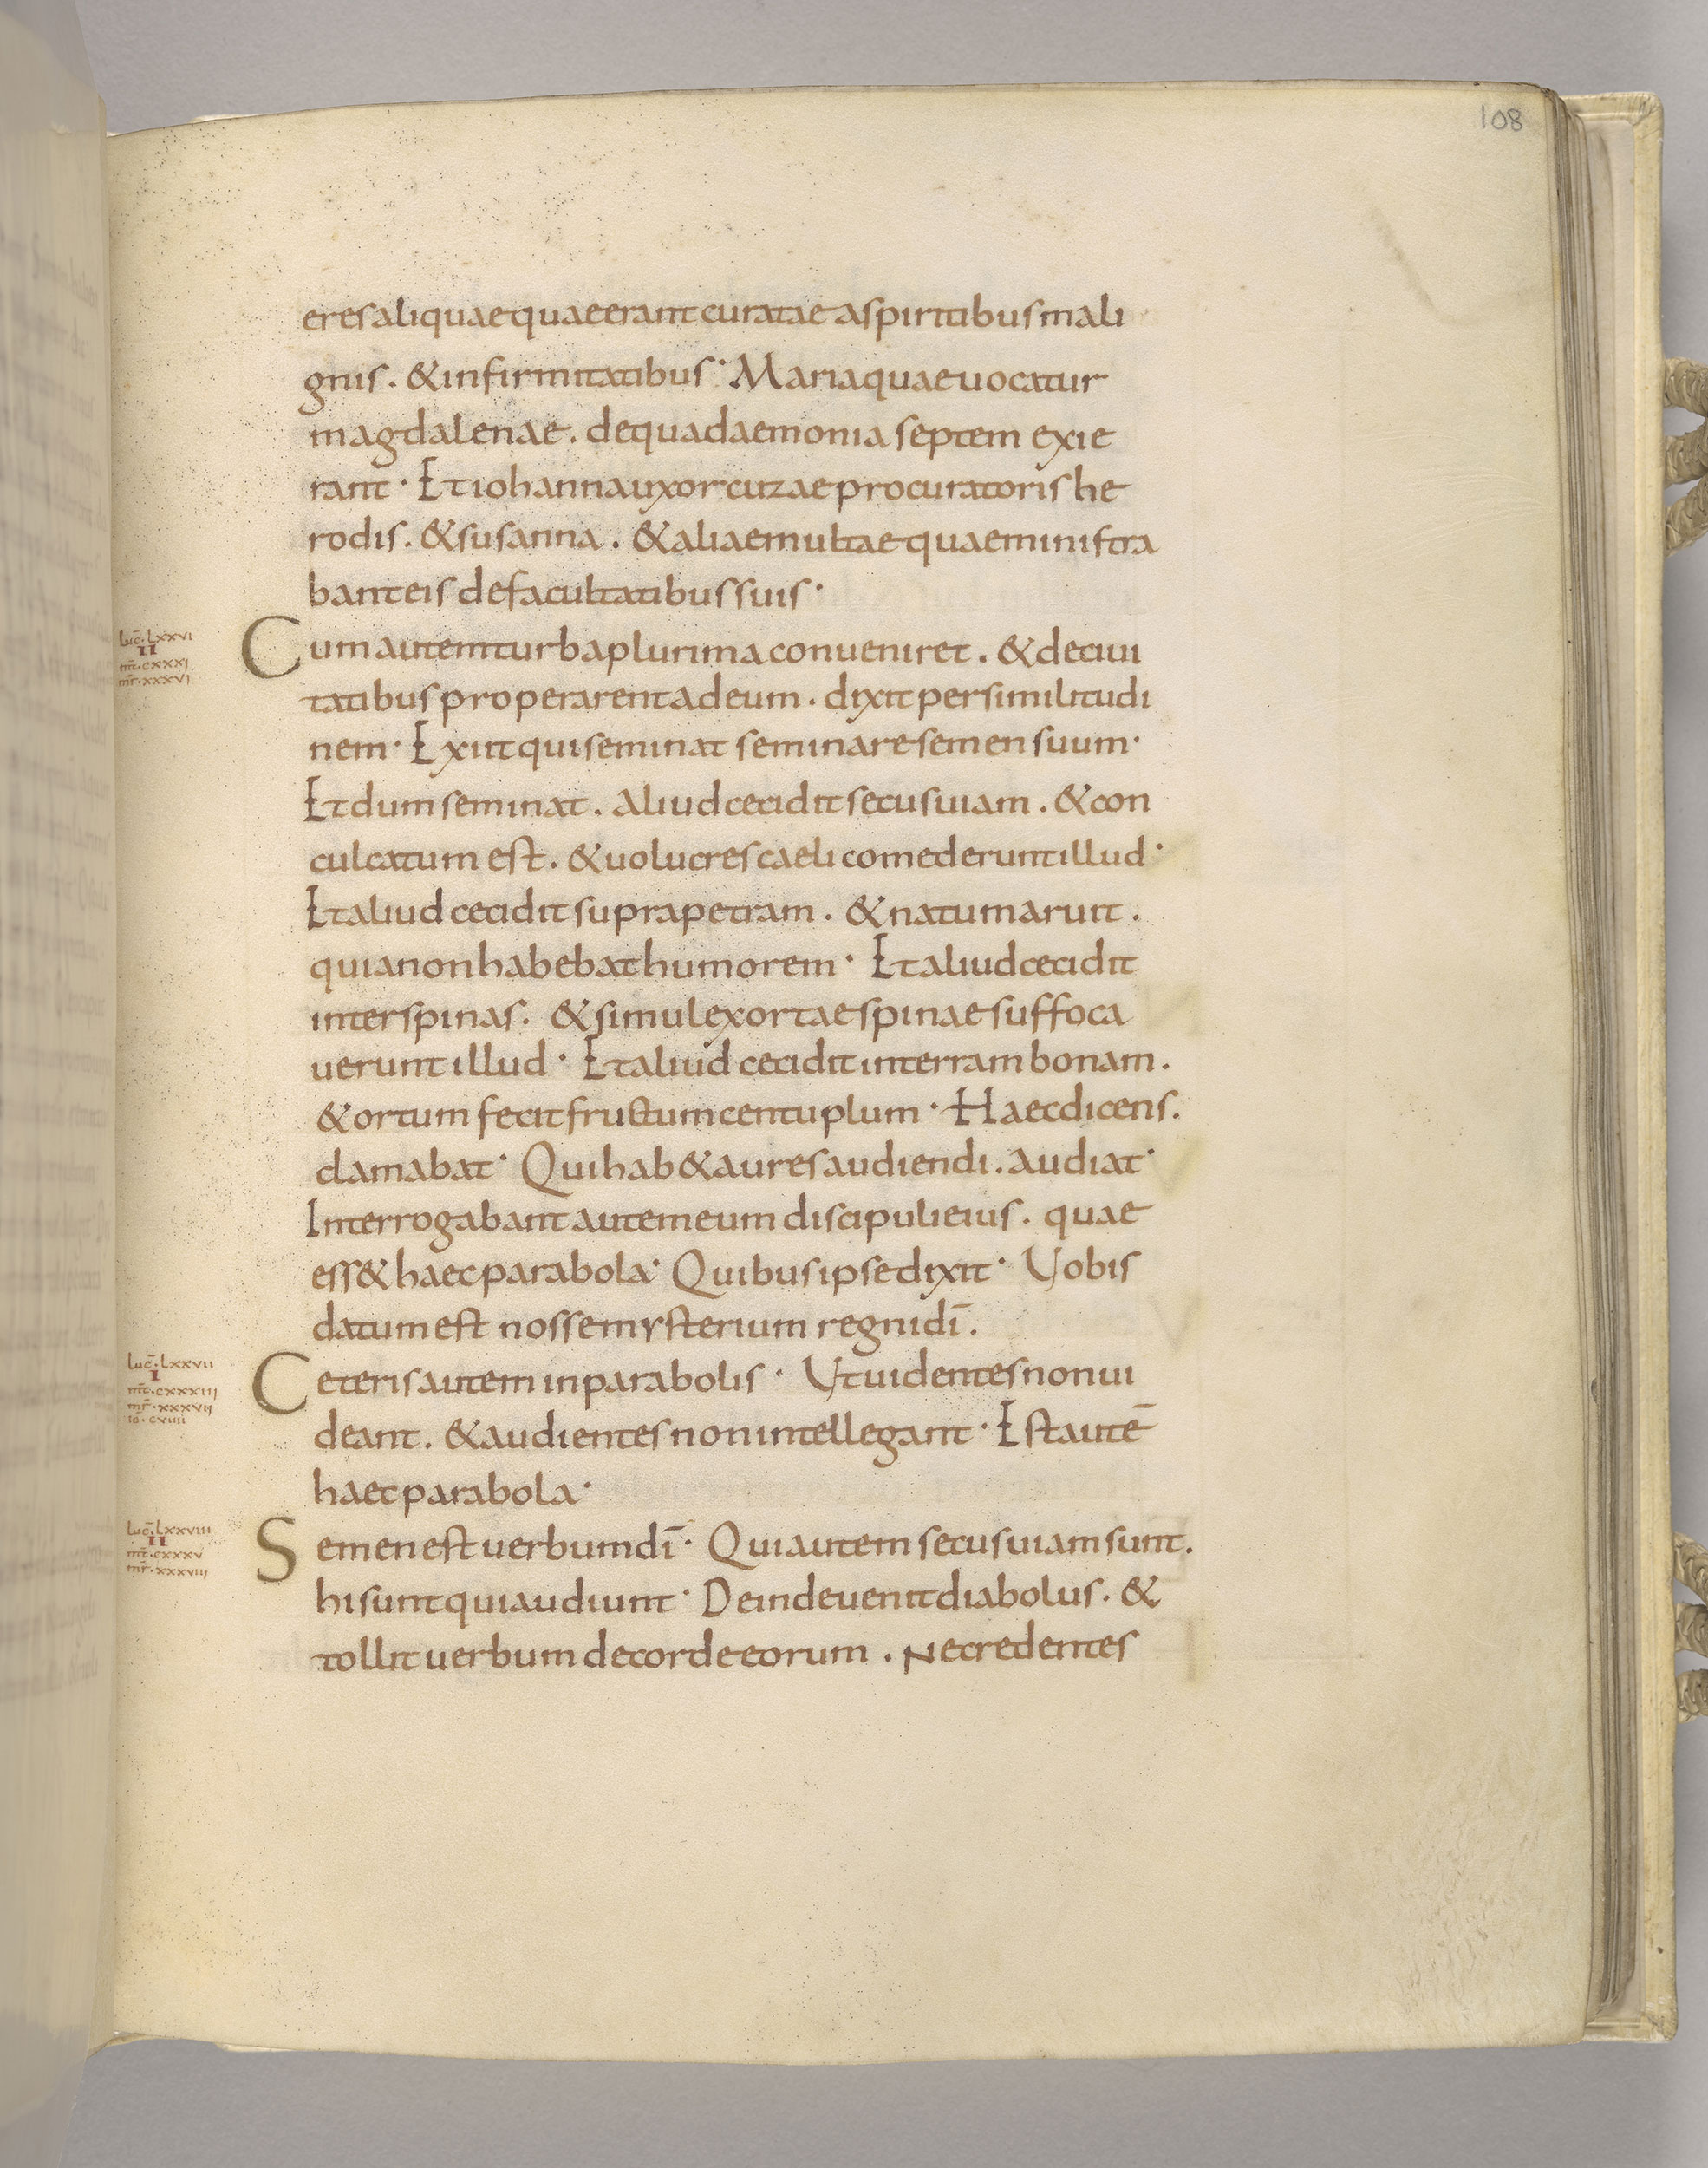 108
eres aliquae quae erant curatae aspiritibus mali
gnis. & infirmitatibus· Maria quae uocatur
magdalenae. dequa daemonia septem exie
rant· Et iohanna uxor cuzae procuratoris he
rodis. & susanna. & aliae multae quae ministra
bant eis defacultatibus suis·
Luc̄. Lxxvi
II
mt̄. cxxxi
mr̄. xxxvi
Cum autem turba plurima conueniret. & deciui
tatibus properarent adeum. dixit persimilitudi
nem· Exiit qui seminat seminare semen suum·
Et dum seminat. aliud cecidit secus uiam. & con
culcatum est. & uolucres caeli comederunt illud·
Et aliud cecidit supra petram. & natum aruit.
quia non habebat humorem· Et aliud cecidit
inter spinas. & simul exortae spinae suffoca
uerunt illud· Et aliud cecidit interram bonam.
& ortum fecit fructum centuplum· Haec dicens.
clamabat· Qui hab& aures audiendi. audiat·
Interrogabant autem eum discipuli eius. quae
ess& haec parabola· Quibus ipse dixit· Vobis
datum est nosse mysterium regni dī.
Luc̄. Lxxvii
I
mt̄. cxxxiii
mr̄. xxxvii
io. cviiii
Ceteris autem inparabolis· Vt uidentes non ui
deant. & audientes non intellegant· Est autē
haec parabola·
Luc̄. Lxxviii
II
mt̄. cxxxv
mr̄. xxxviii
Semen est uerbum dī· Qui autem secus uiam sunt.
hi sunt qui audiunt· Deinde uenit diabolus. &
tollit uerbum decorde eorum. Ne credentes